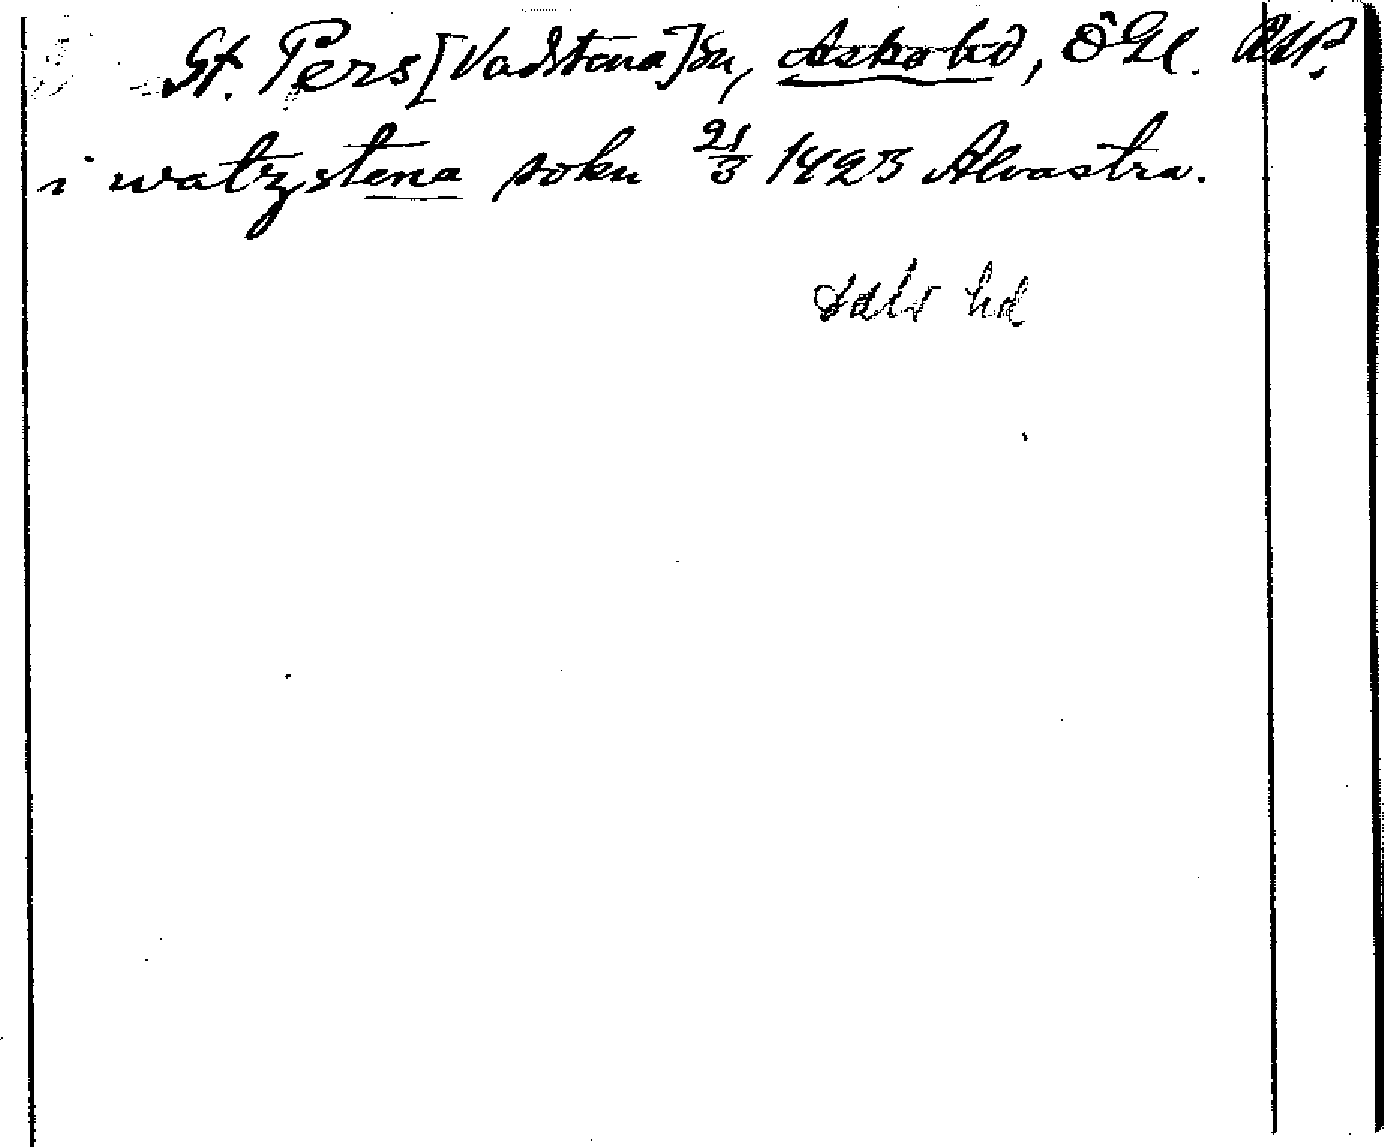 St. Pers [Vadstena] sn, Aska hd, ÖGl.
i watzstena sokn 21/3 1423 Alvastra.
Dals hd